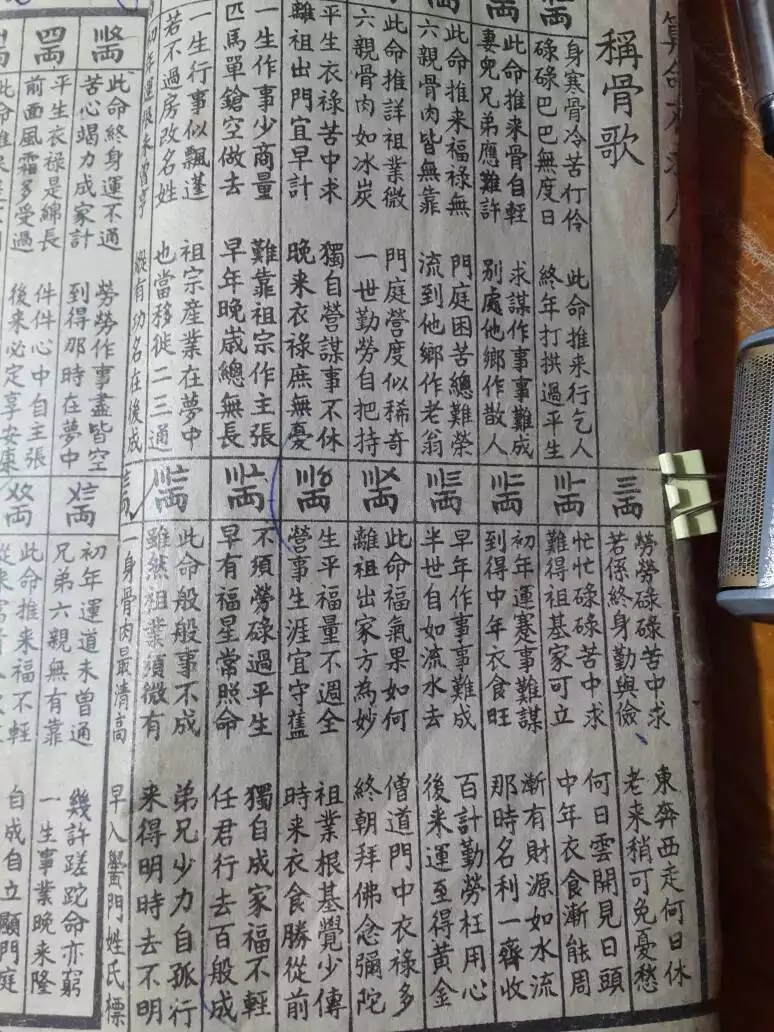 稱骨歌
身寒骨冷苦仃伶 此命推来行乞人
碌碌巴巴無度日 終年打拱過平生
此命推来骨自輕 求謀作事事難成
妻兒兄弟應難許 別處他鄉作散人
此命推来福祿無 門庭困苦總難榮
六親骨肉皆無靠 流到他鄉作老翁
此命推詳祖業微 門庭營度似稀奇
六親骨肉如冰炭 一世勤勞自把持
平生衣祿苦中求 獨自營謀事不休
離祖出門宜早計 晚来衣祿庶無憂
一生作事少商量 難靠祖宗作主張
匹馬單鎗空做去 早年晚歲總無長
一生行事似飄蓬 祖宗產業在夢中
若不過房改名姓 也當移徙二三通
初年運限未曾亨 縱有功名在後成
三兩
勞勞碌碌苦中求 東奔西走何日休
若係終身勤與儉 老来稍可免憂愁
〣一兩
忙忙碌碌苦中求 何日雲開見日頭
難得祖基家可立 中年衣食漸能周
〣二兩
初年運蹇事難謀 漸有財源如水流
到得中年衣食旺 那時名利一齊收
〣三兩
早年作事事難成 百計勤勞枉用心
半世自如流水去 後来運至得黃金
〣〤兩
此命福氣果如何 僧道門中衣祿多
離祖出家方為妙 終朝拜佛念彌陀
〣〥兩
生平福量不週全 祖業根基覺少傳
營事生涯宜守舊 時来衣食勝從前
〣〦兩
不須勞碌過平生 獨自成家福不輕
早有福星常照命 任君行去百般成
〣〧兩
此命般般事不成 弟兄少力自孤行
雖然祖業須微有 来得明時去不明
一身骨肉最清高 早入黌門姓氏標
此命終身運不通 勞勞作事盡皆空
苦心竭力成家計 到得那時在夢中
四兩
平生衣祿是綿長 件件心中自主張
前面風霜多受過 後来必定享安康
〤三兩
初年運道未曾通 幾許蹉跎命亦窮
兄弟六親無有靠 一生事業晚来隆
此命推来福不輕 自成自立顯門庭